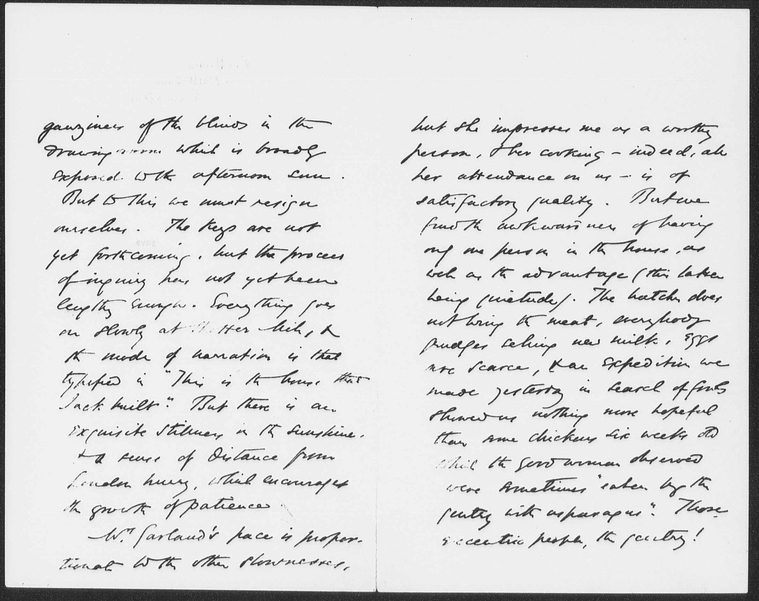 gauziness of the blinds in the
drawing room which is broadly
exposed to the afternoon sun.
But to this we must resign
ourselves. The keys are not
yet forthcoming, but the process
of inquiry has not yet been
lengthy enough. Everything goes
on slowly at Hitter Hill, &
the mode of narration is that
typified in "This is the house that
Jack built". But there is an
exquisite stillness in the sunshine,
& a sense of distance from
London hurry, which encourages
the growth of patience
Mrs Garland's pace is propor-
tionate to the other slownesses,
but she impresses me as a worthy
person, & her cooking – indeed, all
her attendance on us – is of
satisfactory quality. But we
find the awkwardness of having
only one person in the house, as
well as the advantage (this latter
being quietude). The butcher does
not bring the meat, everybody
grudges selling new milk, eggs
are scarce, & an expedition we
made yesterday in search of fowls
showed us nothing more hopeful
than some chickens six weeks old
which the good woman observed
were sometimes "eaten by the
gentry with asparagus". Those
eccentric people, the gentry!